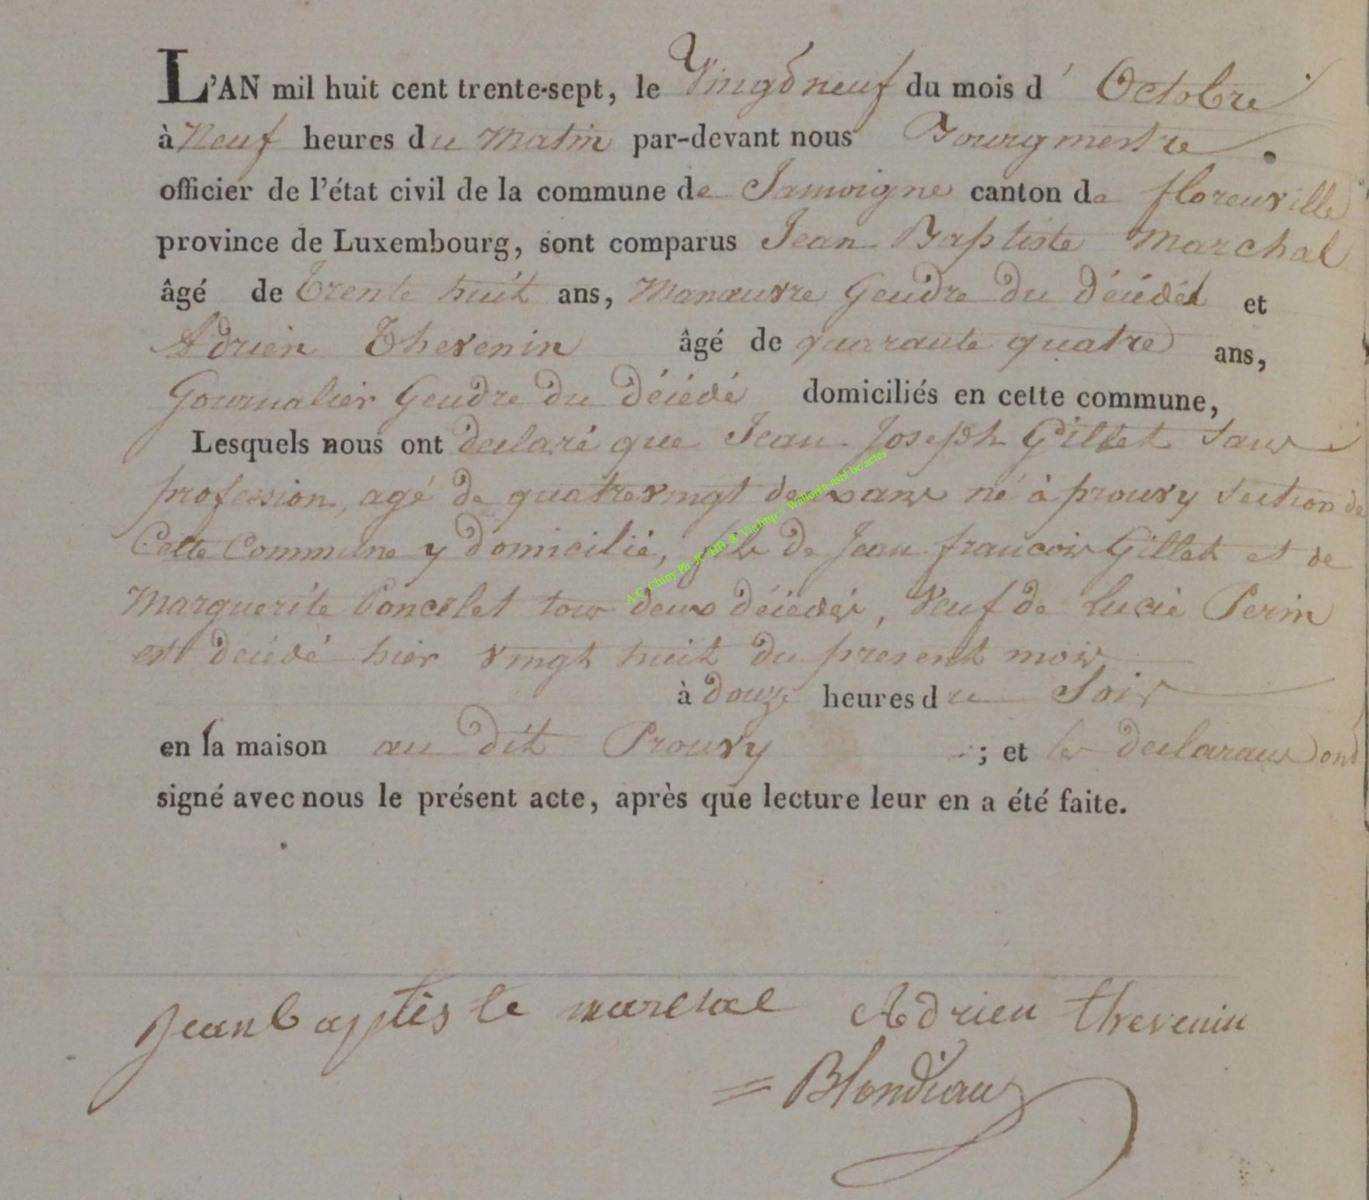 L'AN mil huit cent trente-sept, le Vingt neuf du mois d' Octobre
à Neuf heures du Matin par-devant nous Bourgmestre
officier de l'état civil de la commune de Jamoigne canton de florenville
province de Luxembourg, sont comparus Jean Baptiste Marchal
âgé de Trente huit ans, Manœuvre Gendre du décédé et
Adrien Thevenin âgé de quarante quatre ans,
Journalier Gendre du décédé domiciliés en cette commune,
Lesquels nous ont declaré que Jean Joseph Gillet Sans
profession, agé de quatrevingt deux ans né à prouvy Section de
Cette Commune y domicilié, fils de Jean francois Gillet et de
Marguerite Poncelet tous deux décédés, Veuf de Lucie Perin
est décédé hier vingt huit du present mois
à douze heures du Soir
en la maison au dit Prouvy ; et les declarans ont
signé avec nous le présent acte, après que lecture leur en a été faite.
Jean baptiste marchal Adrien thevenin
Blondiaux